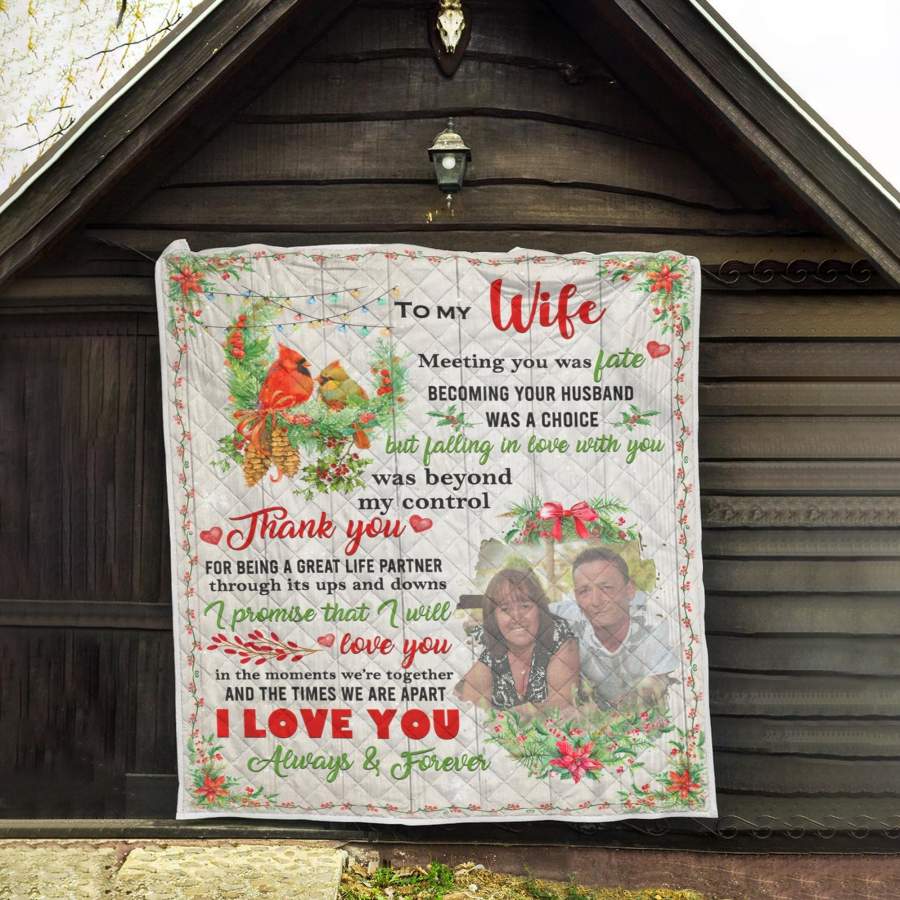 To my Wife
Meeting you was fate
BECOMING YOUR HUSBAND
WAS A CHOICE
but falling in love with you
was beyond
my control
Thank you
FOR BEING A GREAT LIFE PARTNER
through its ups and downs
I promise that I will
love you
in the moments we're together
AND THE TIMES WE ARE APART
I LOVE YOU
Always & Forever